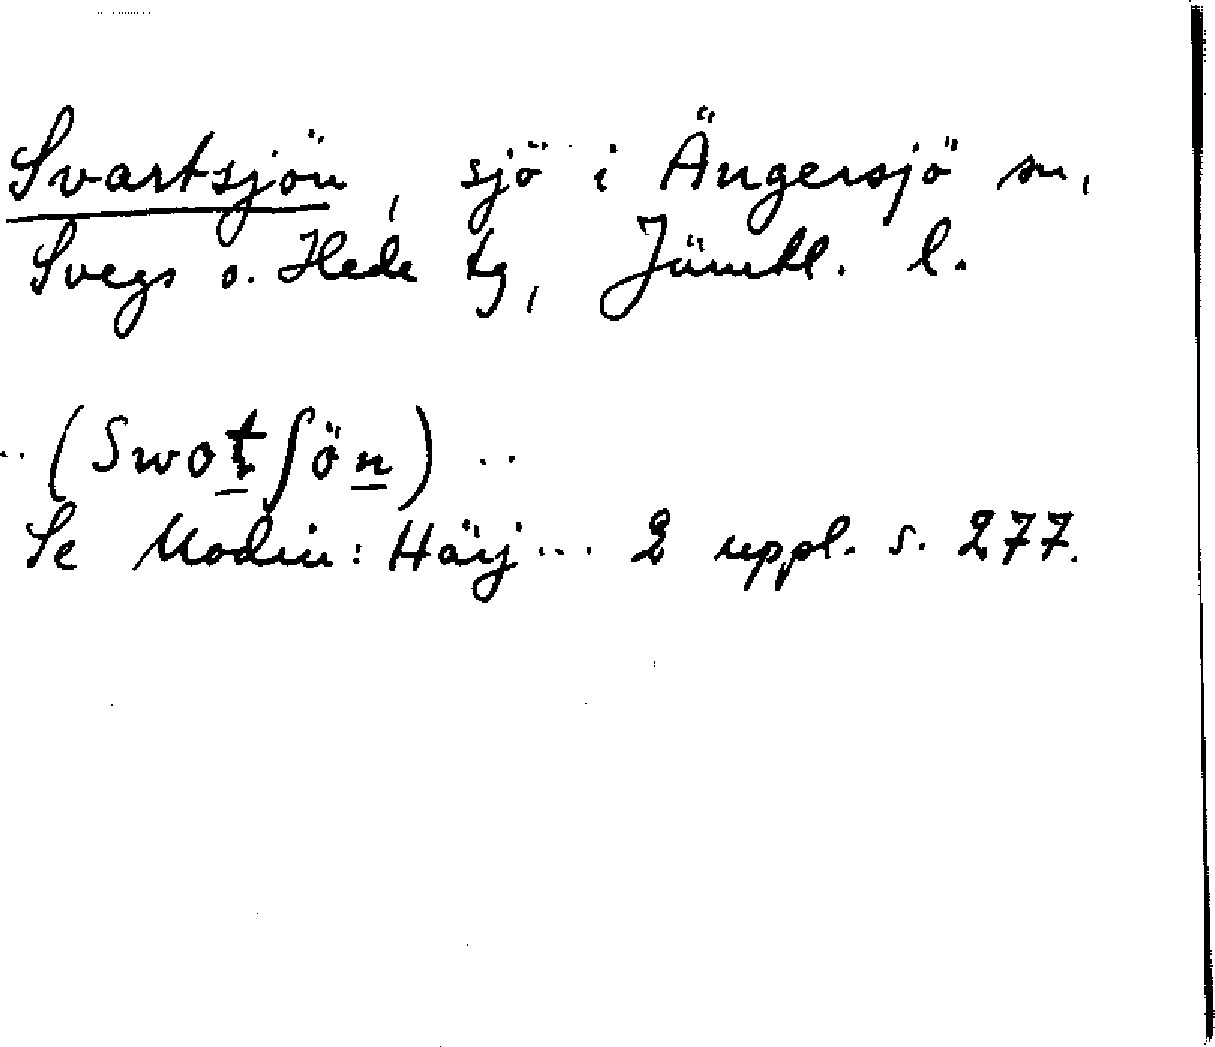 Svartsjön, sjö i Ängersjö sn,
Svegs o. Hede tg, Jämtl. l.
.. (Swotʃön) ..
Se Modin: Härj... 2 uppl. s. 277.